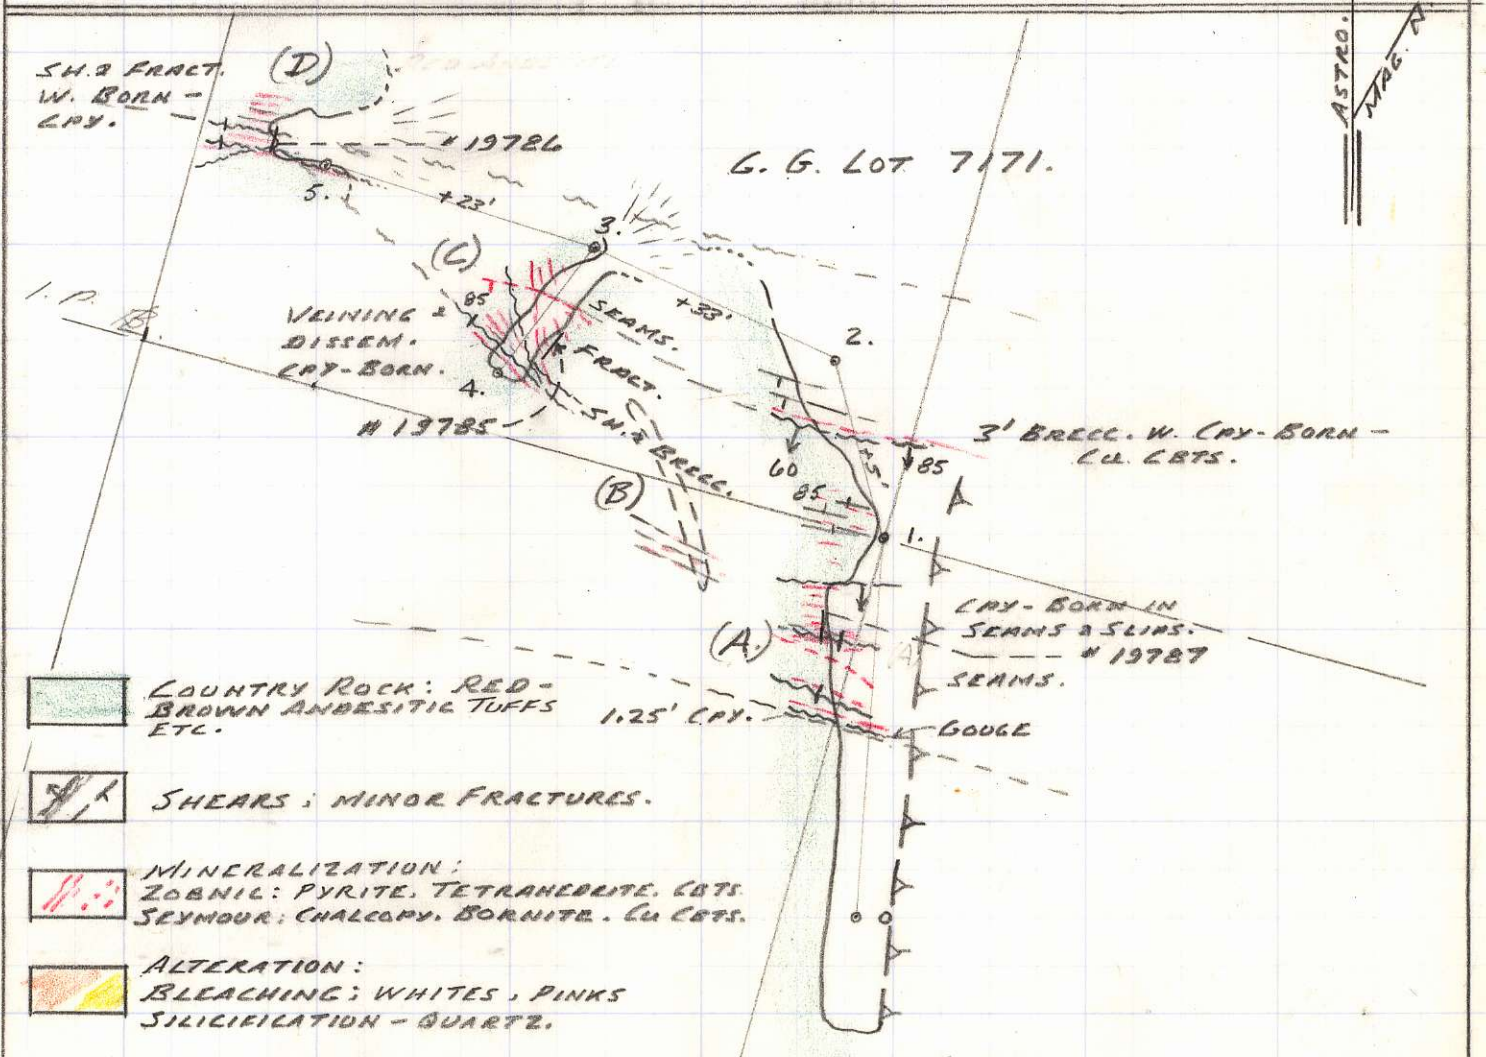 ASTRO.
MAG. N.
SH. & FRACT.
W. BORN -
CPY.
(D)
# 19786
G. G. LOT 7171.
5.
+23'
3.
(C)
I. P.
85
VEINING &
DISSEM.
CPY-BORN.
4.
# 19785
SEAMS.
FRACT.
SH. & BRECC.
+33'
2.
3' BRECC. W. CPY-BORN -
CU. CBTS.
60
+5'
85
85
(B)
1.
(A)
CPY-BORN IN
SEAMS & SLIPS.
# 19787
SEAMS.
1.25' CPY.
GOUGE
COUNTRY ROCK: RED-
BROWN ANDESITIC TUFFS
ETC.
SHEARS; MINOR FRACTURES.
MINERALIZATION:
ZOBNIC: PYRITE. TETRAHEDRITE. CBTS.
SEYMOUR: CHALCOPY. BORNITE. CU CBTS.
O
ALTERATION:
BLEACHING; WHITES, PINKS
SILICIFICATION - QUARTZ.